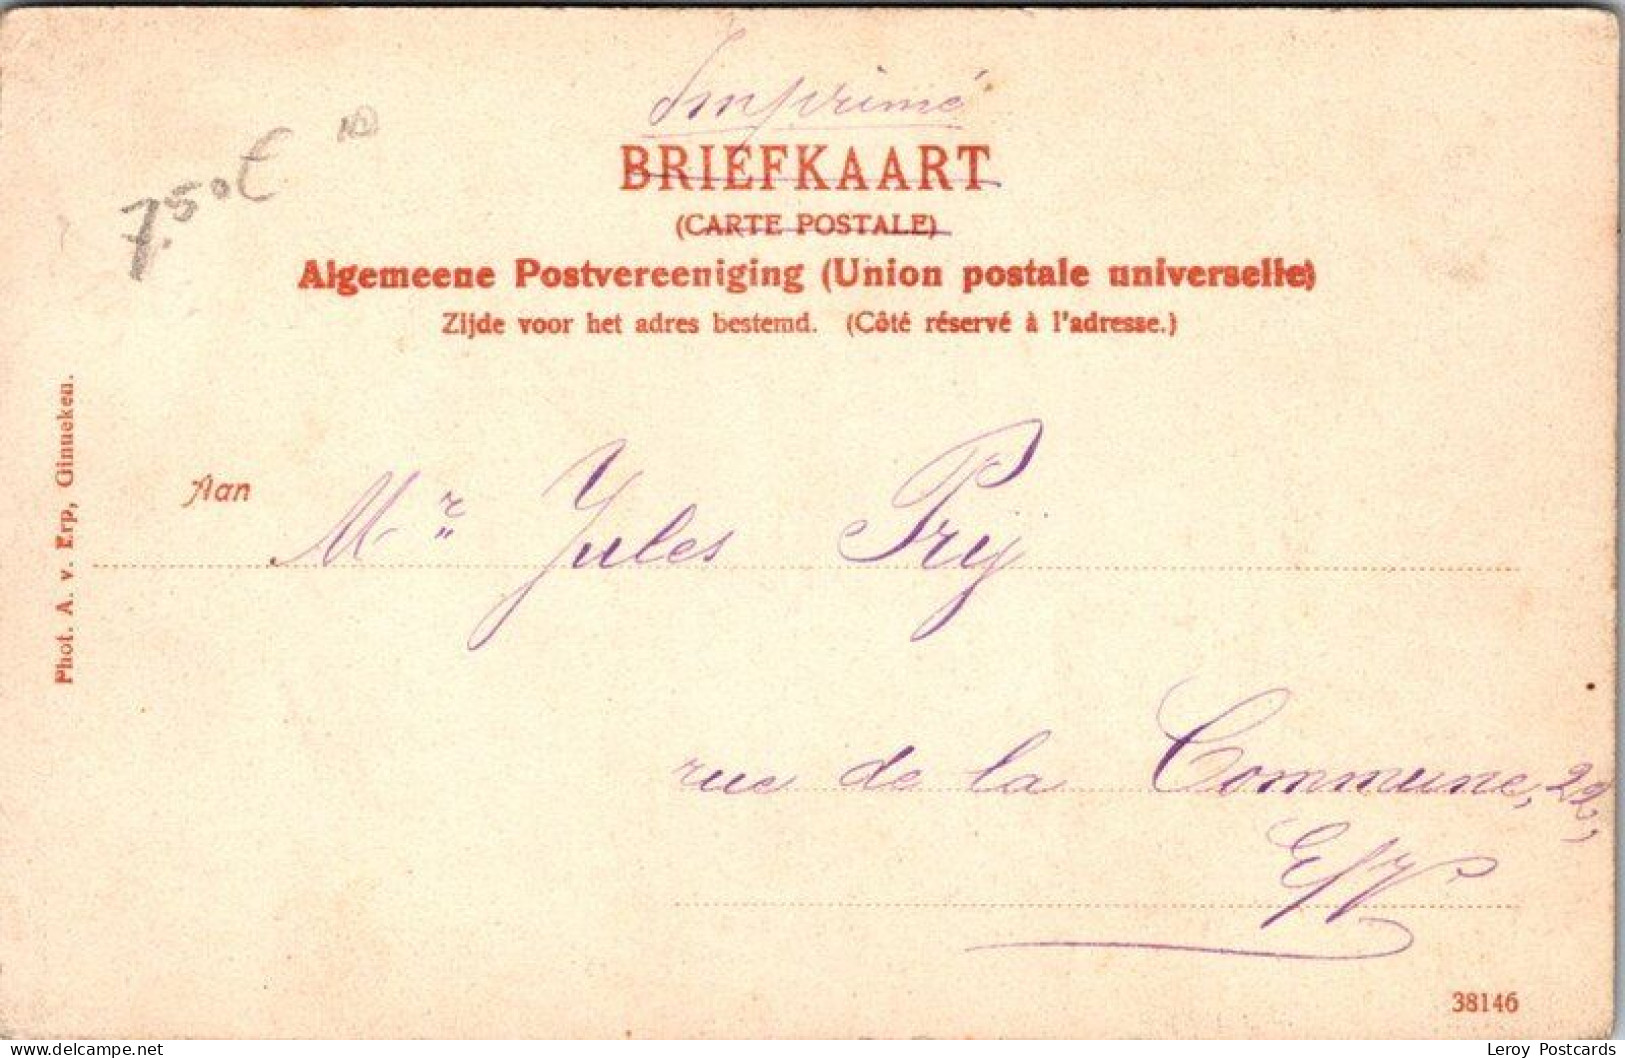 Imprimé
7.50€
BRIEFKAART
(CARTE POSTALE)
Algemeene Postvereeniging (Union postale universelle)
Zijde voor het adres bestemd. (Côté réservé à l'adresse.)
Phot. A. v. Erp, Ginneken.
Aan
Mr Jules Prij
rue de la Commune, 22,
E/V
38146
delcampe.net
Leroy Postcards